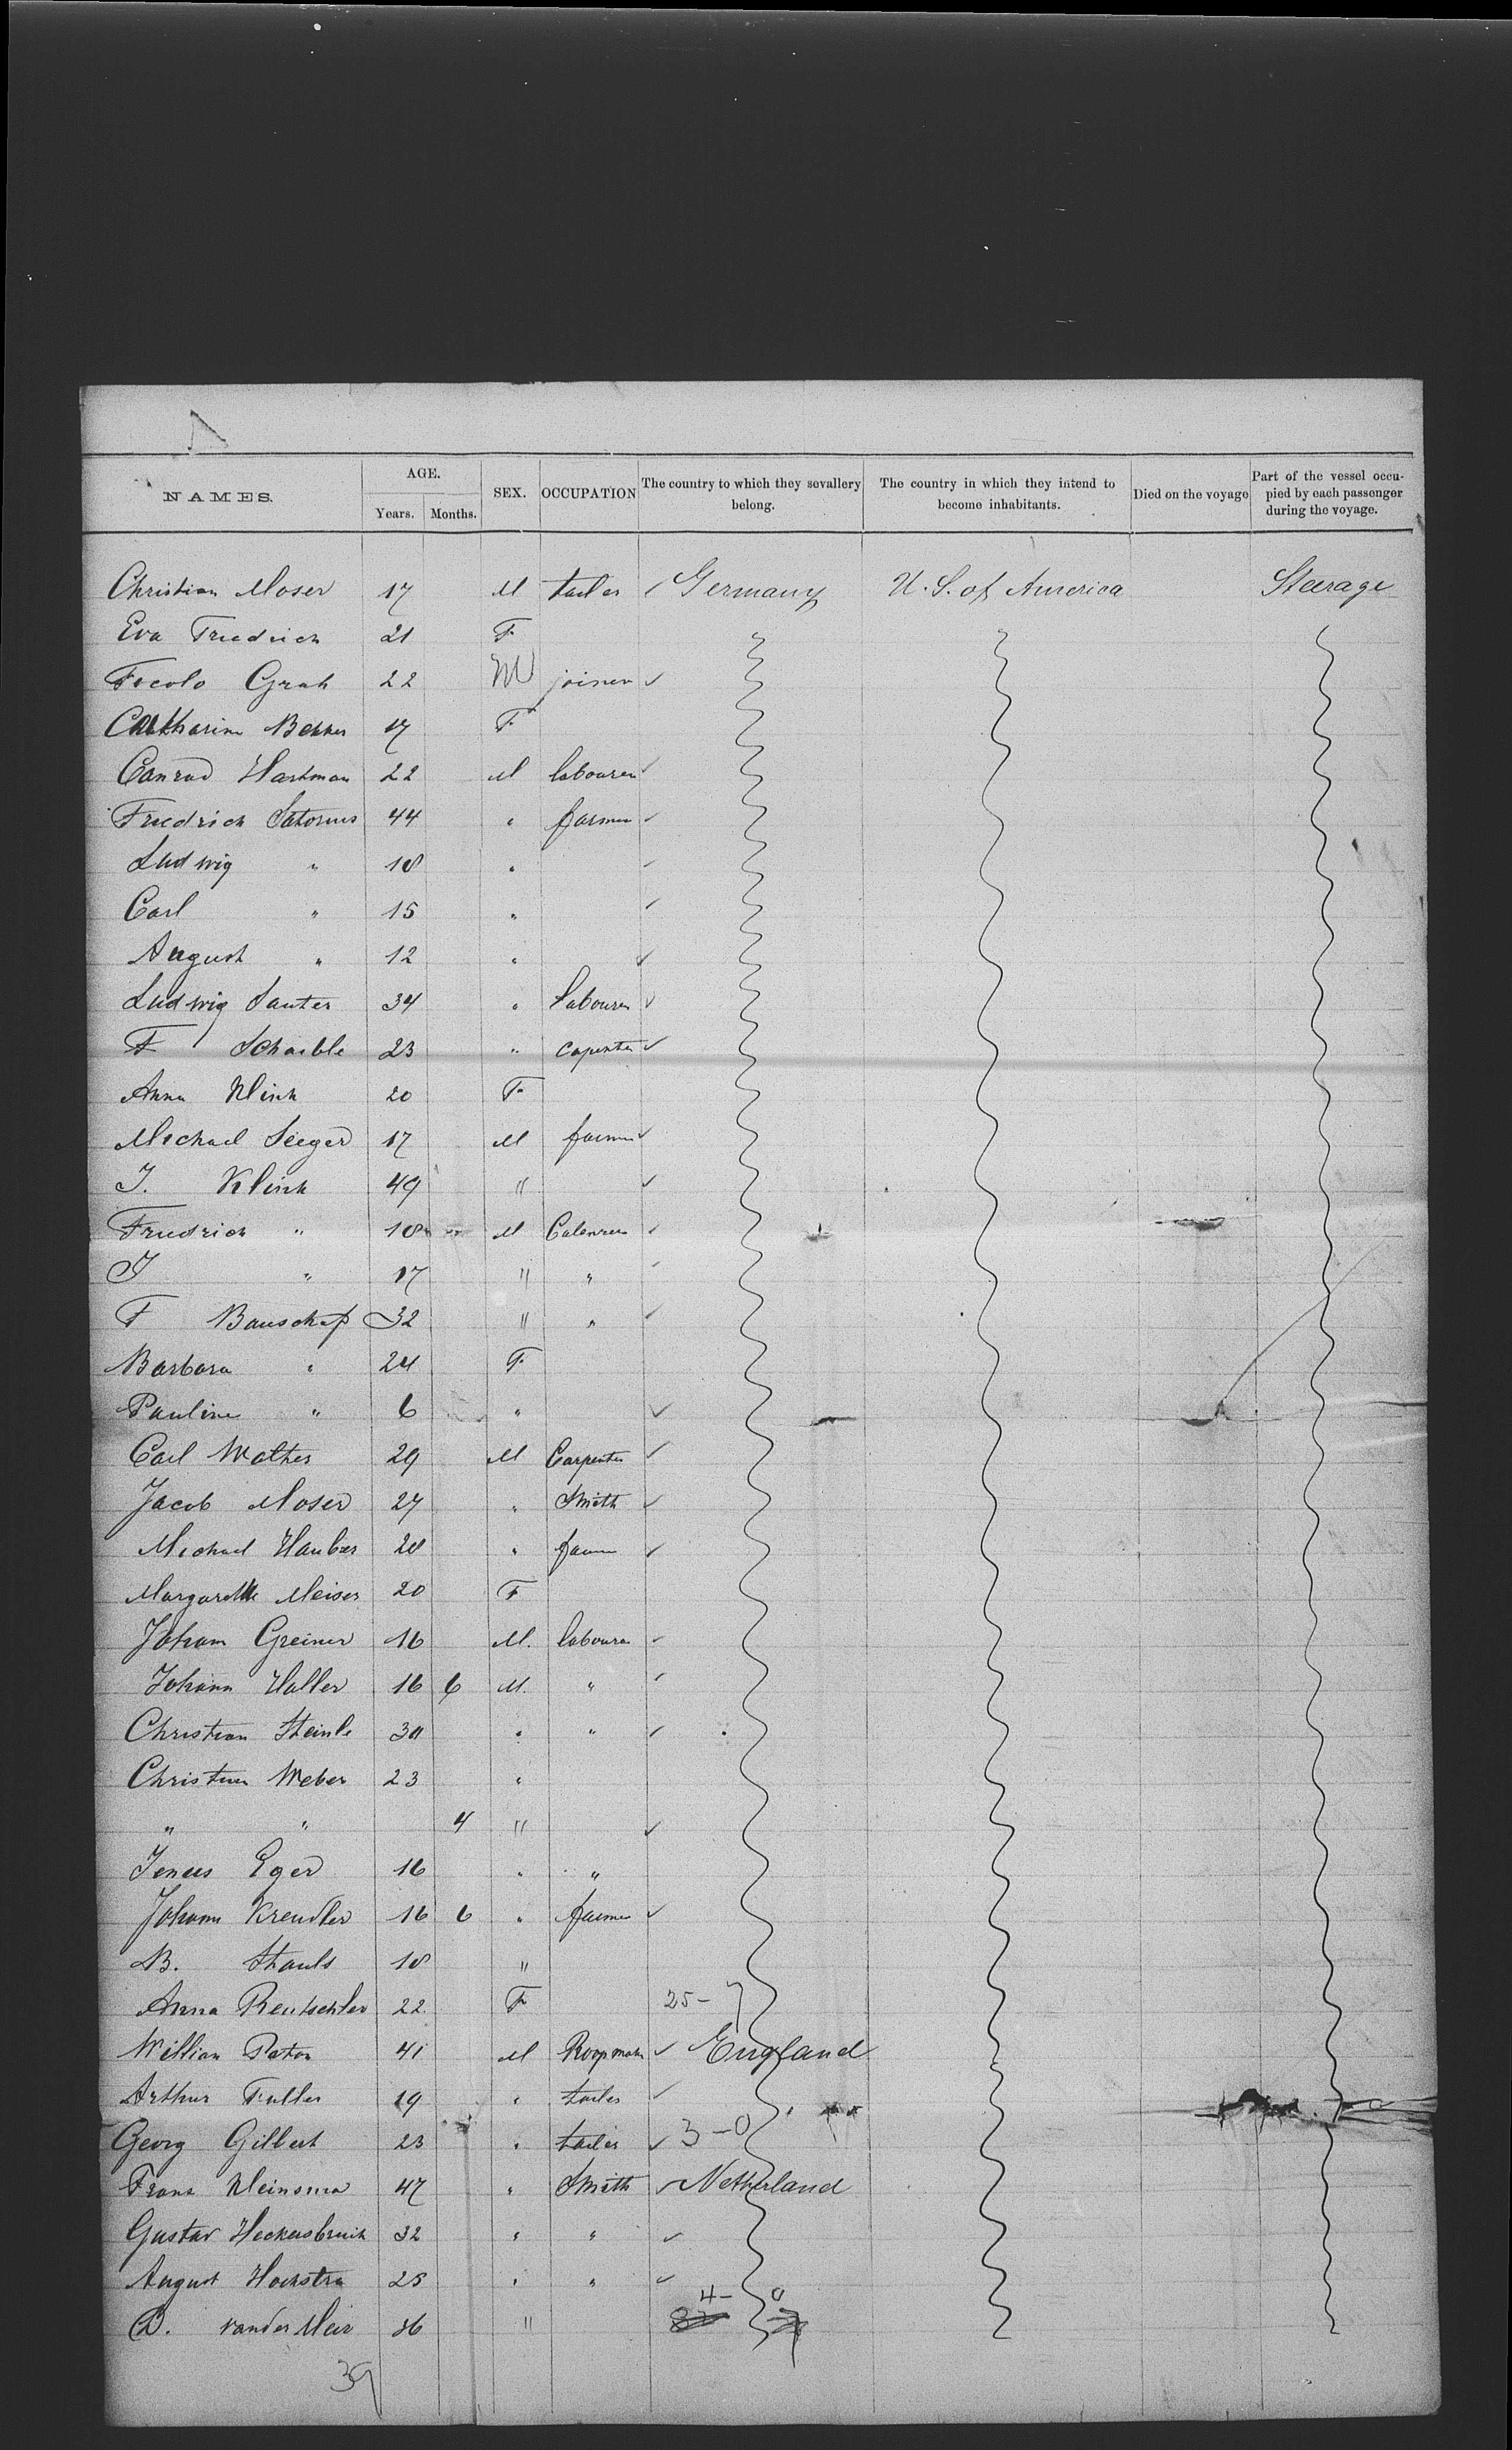 NAMES. AGE. SEX. OCCUPATION The country to which they sevallery belong. The country in which they intend to become inhabitants. Died on the voyage Part of the vessel occupied by each passenger during the voyage.
Years. Months.
Christian Moser 17 M tailor ✓ Germany U. S. of America Steerage
Eva Friedrich 21 F
Focolo Grah 22 M joiner ✓
Catharine Bekker 17 F
Conrad Hartman 22 M labourer ✓
Friedrich Satorius 44 " farmer ✓
Ludwig " 18 " ✓
Carl " 15 " ✓
August " 12 " ✓
Ludwig Sauter 34 " labourer ✓
F Schaible 23 " capenter ✓
Anna Klink 20 F
Michael Seeger 17 M farmer ✓
J. Klink 49 " ✓
Friedrich " 18 M ✓
J " 17 " " ✓
F Bauschaf 32 " " ✓
Barbara " 24 F
Pauline " 6 " ✓
Carl Walther 29 M Carpenter ✓
Jacob Moser 27 " Smith ✓
Michael Hauber 28 " farmer ✓
Margarethe Meiser 20 F
Johann Greiner 16 M. labourer ✓
Johann Haller 16 6 M. " ✓
Christian Steinle 30 " " ✓
Christian Weber 23 "
" " 4 " ✓
Eger 16 " "
Johann Krendler 16 6 " farmer ✓
B. Straub 18 "
Anna Rentschler 22 F 25 - 7
William Paton 41 M Roopmaker ✓ England
Arthur Fuller 19 " tailor ✓
Georg Gilbert 23 " tailor ✓ 3 - 0
Frans Kleinsma 47 " Smith ✓ Netherland
Gustav Heckersbruch 32 " " ✓
August Hoekstra 25 " " ✓
D. van der Meir 36 " 4 - 0
39